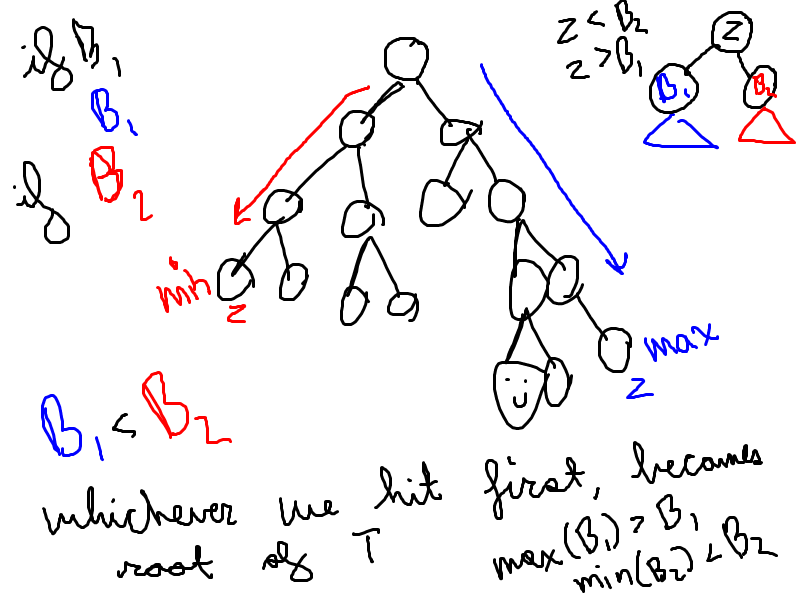 if B₁
B₁
if B₂
z < B₂
z > B₁
z
B₁
B₂
min
z
max
z
B₁ < B₂
whichever we hit first, becomes
root of T
max(B₁) > B₁
min(B₂) < B₂